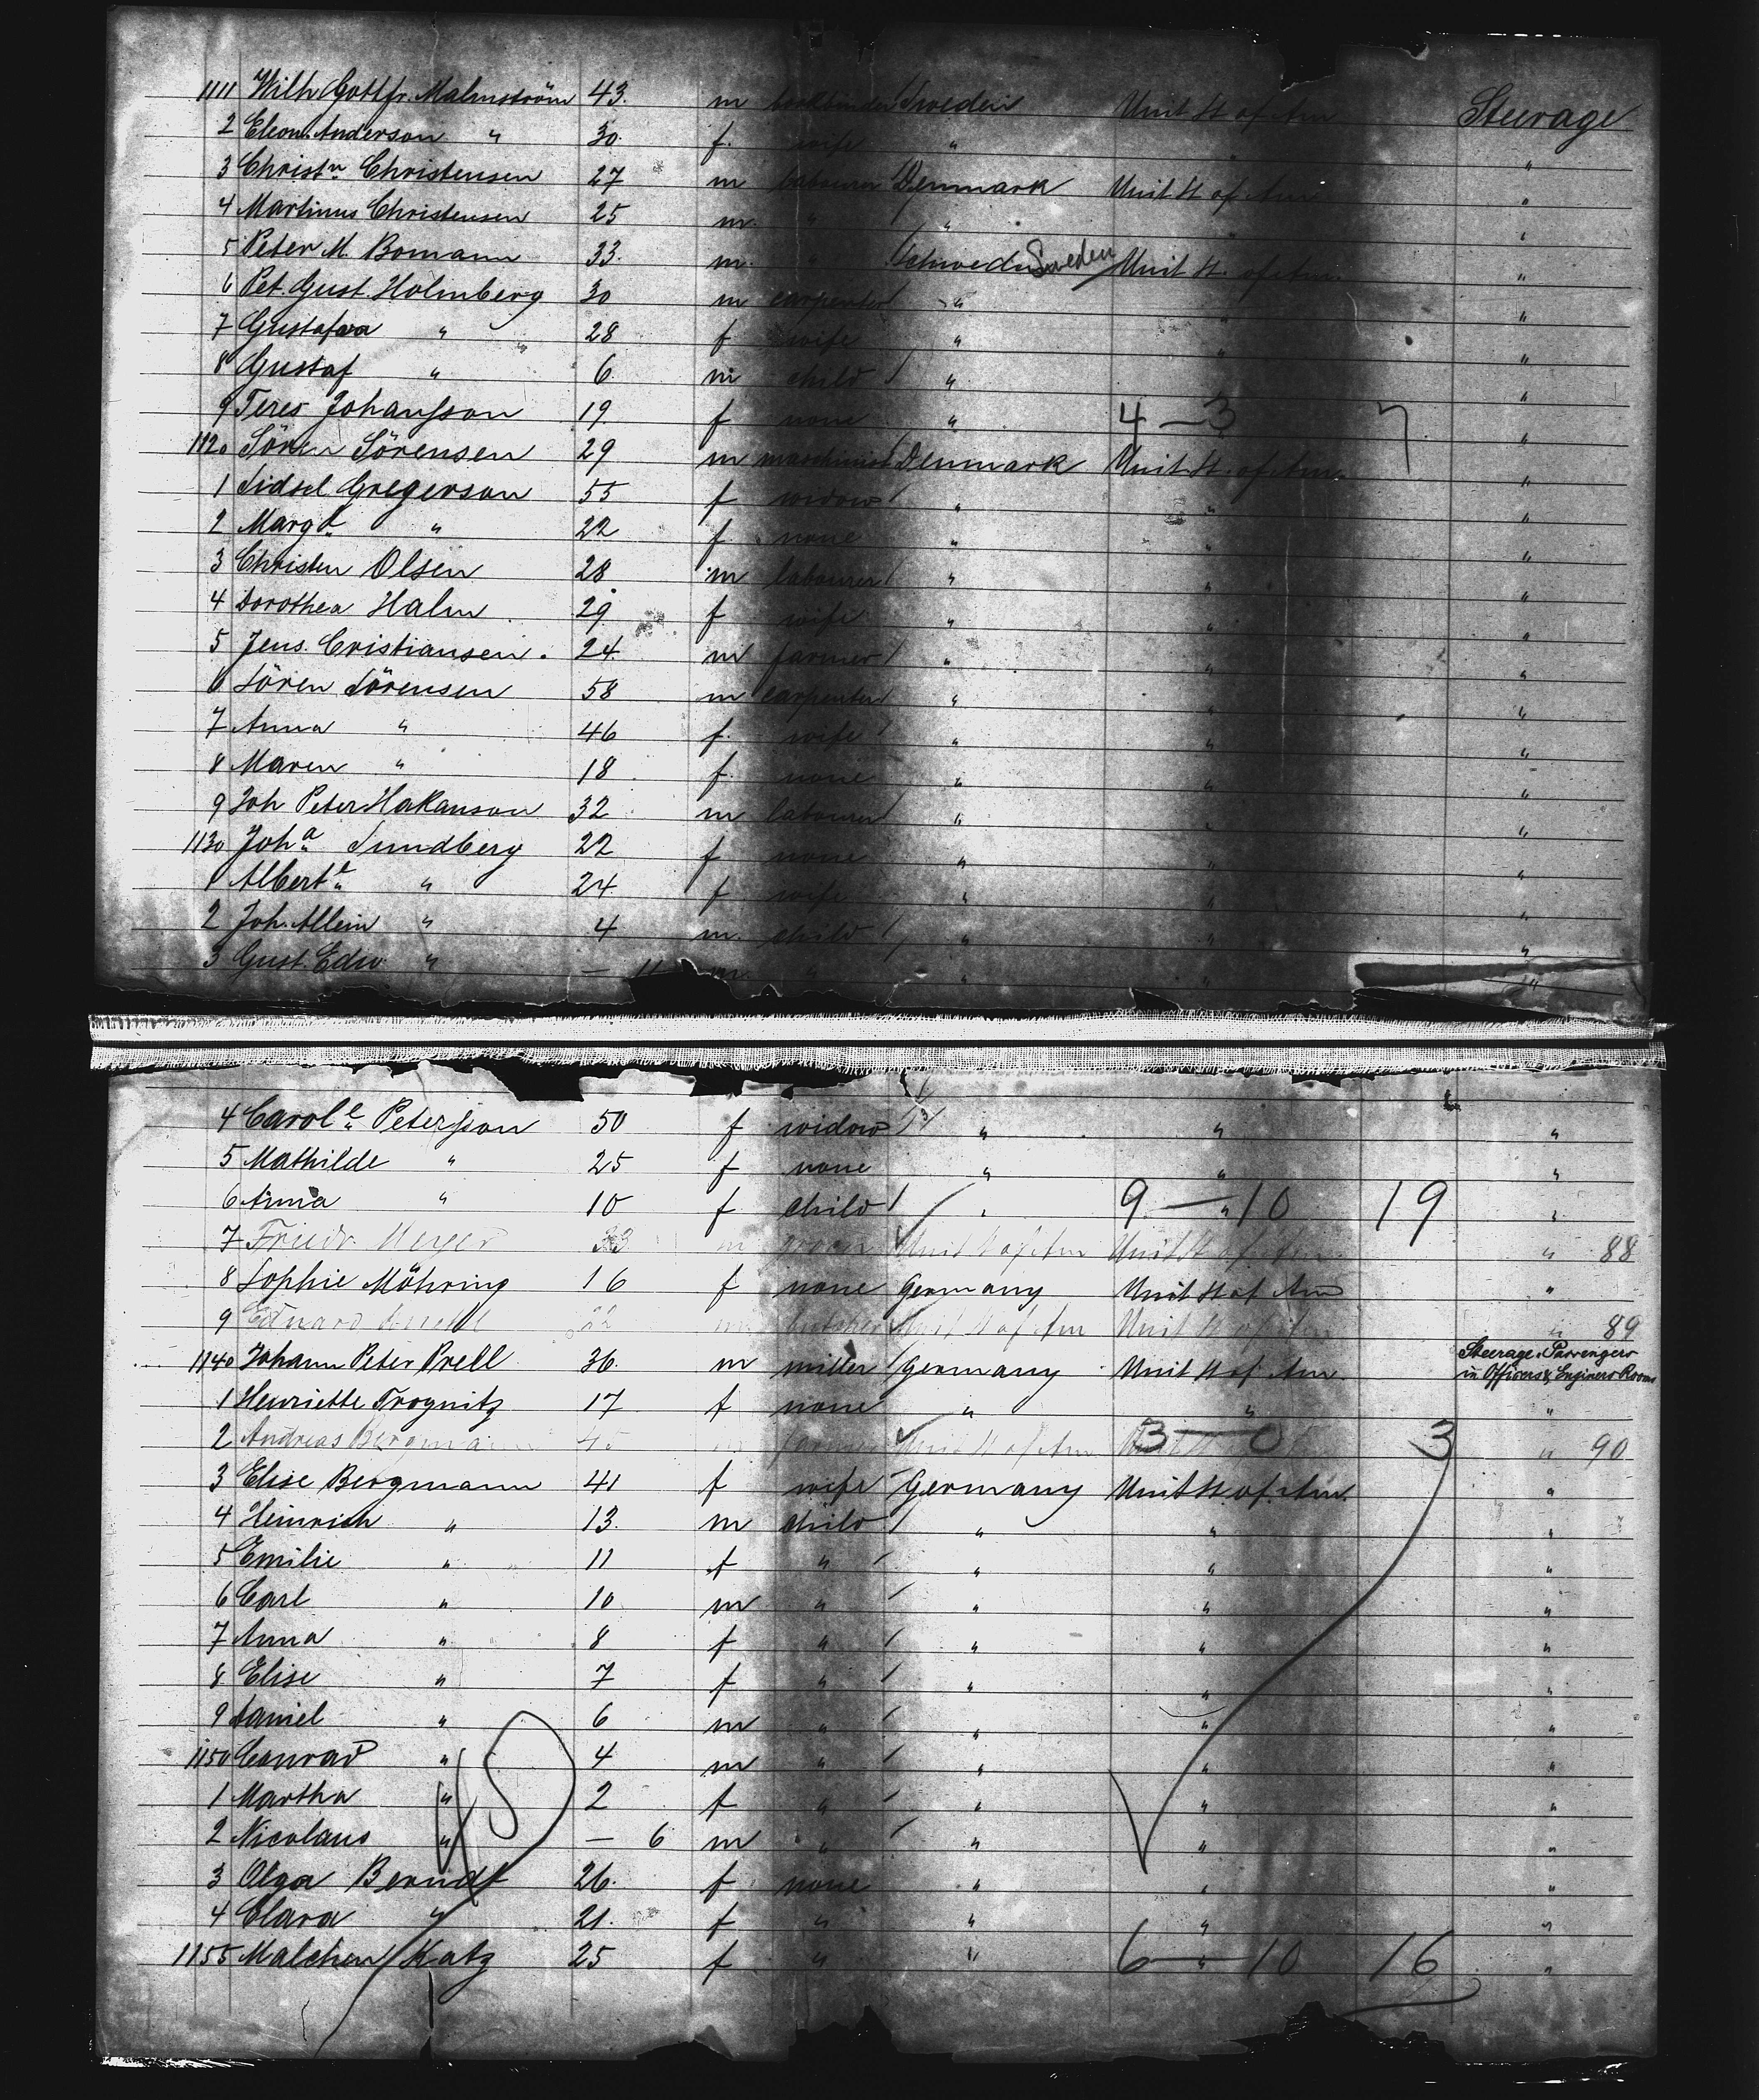 1111 Wilh Gottfr. Malmström 43. m bookbinder Sweden Unit St of Am Steerage
2 Eleon. Anderson " 30. f. wife " " "
3 Christn Christensen 27 m labourer Denmark Unit St of Am "
4 Martinus Christensen 25 m. " " " "
5 Peter M. Bomann 33. m. " Schweden Sweden Unit St. of Am. "
6 Pet. Gust. Holmberg 30 m carpenter " " "
7 Gustafva " 28 f wife " " "
8 Gustaf " 6. m child " "
9 Teres Johansson 19. f none " 4 — 3 7 "
1120 Sören Sörensen 29 m maschinist Denmark Unit St. of Am. "
1 Sidsel Gregerson 55 f widow " " "
2 Margt " 22 f. none " " "
3 Christen Olsen 28 m labourer " " "
4 Dorothea Halm 29. f wife " " "
5 Jens. Cristiansen. 24. m farmer " " "
6 Sören Sörensen 58 m carpenter " " "
7 Anna " 46 f. wife " " "
8 Maren " 18 f. none " " "
9 Joh Peter Hakanson 32 m labourer " " "
1130 Joha Sundberg 22 f none " " "
1 Albertе " 24. f wife " " "
2 Joh. Allein " 4 m. child " " "
3 Gust. Edw " — 11 m. " " " "
4 Carole Petersson 50 f widow " " "
5 Mathilde " 25 f none " " "
6 Anna " 10 f child " 9 — 10 19 "
7 Friedr Meyer 33 m Unit St of Am Unit St of Am " 88
8 Sophie Möhring 16 f none Germany Unit St of Am "
9 Eduard 22 m butcher Unit St of Am Unit St of Am " 89
1140 Johann Peter Prell 36. m miller Germany Unit St of Am. Steerage Passengers
in Officers & Enginers Rooms
1 Henriette Trognitz 17 f none " " "
2 Andreas Bergmann 45 m farmer Unit St of Am 3 — 0 3 " 90
3 Elise Bergmann 41 f wife Germany Unit St. of Am. "
4 Heinrich " 13. m child " " "
5 Emilie " 11 f " " " "
6 Carl " 10 m " " " "
7 Anna " 8 f " " " "
8 Elise " 7 f " " " "
9 Daniel " 6 m " " " "
1150 Conrad " 4 m " " " "
1 Martha " 2 f " " " "
2 Nicolaus " — 6 m " " " "
3 Olga Berndt 26. f none " " "
4 Clara " 21. f " " " "
1155 Malchen Katz 25 f " " 6 — 10 16 "